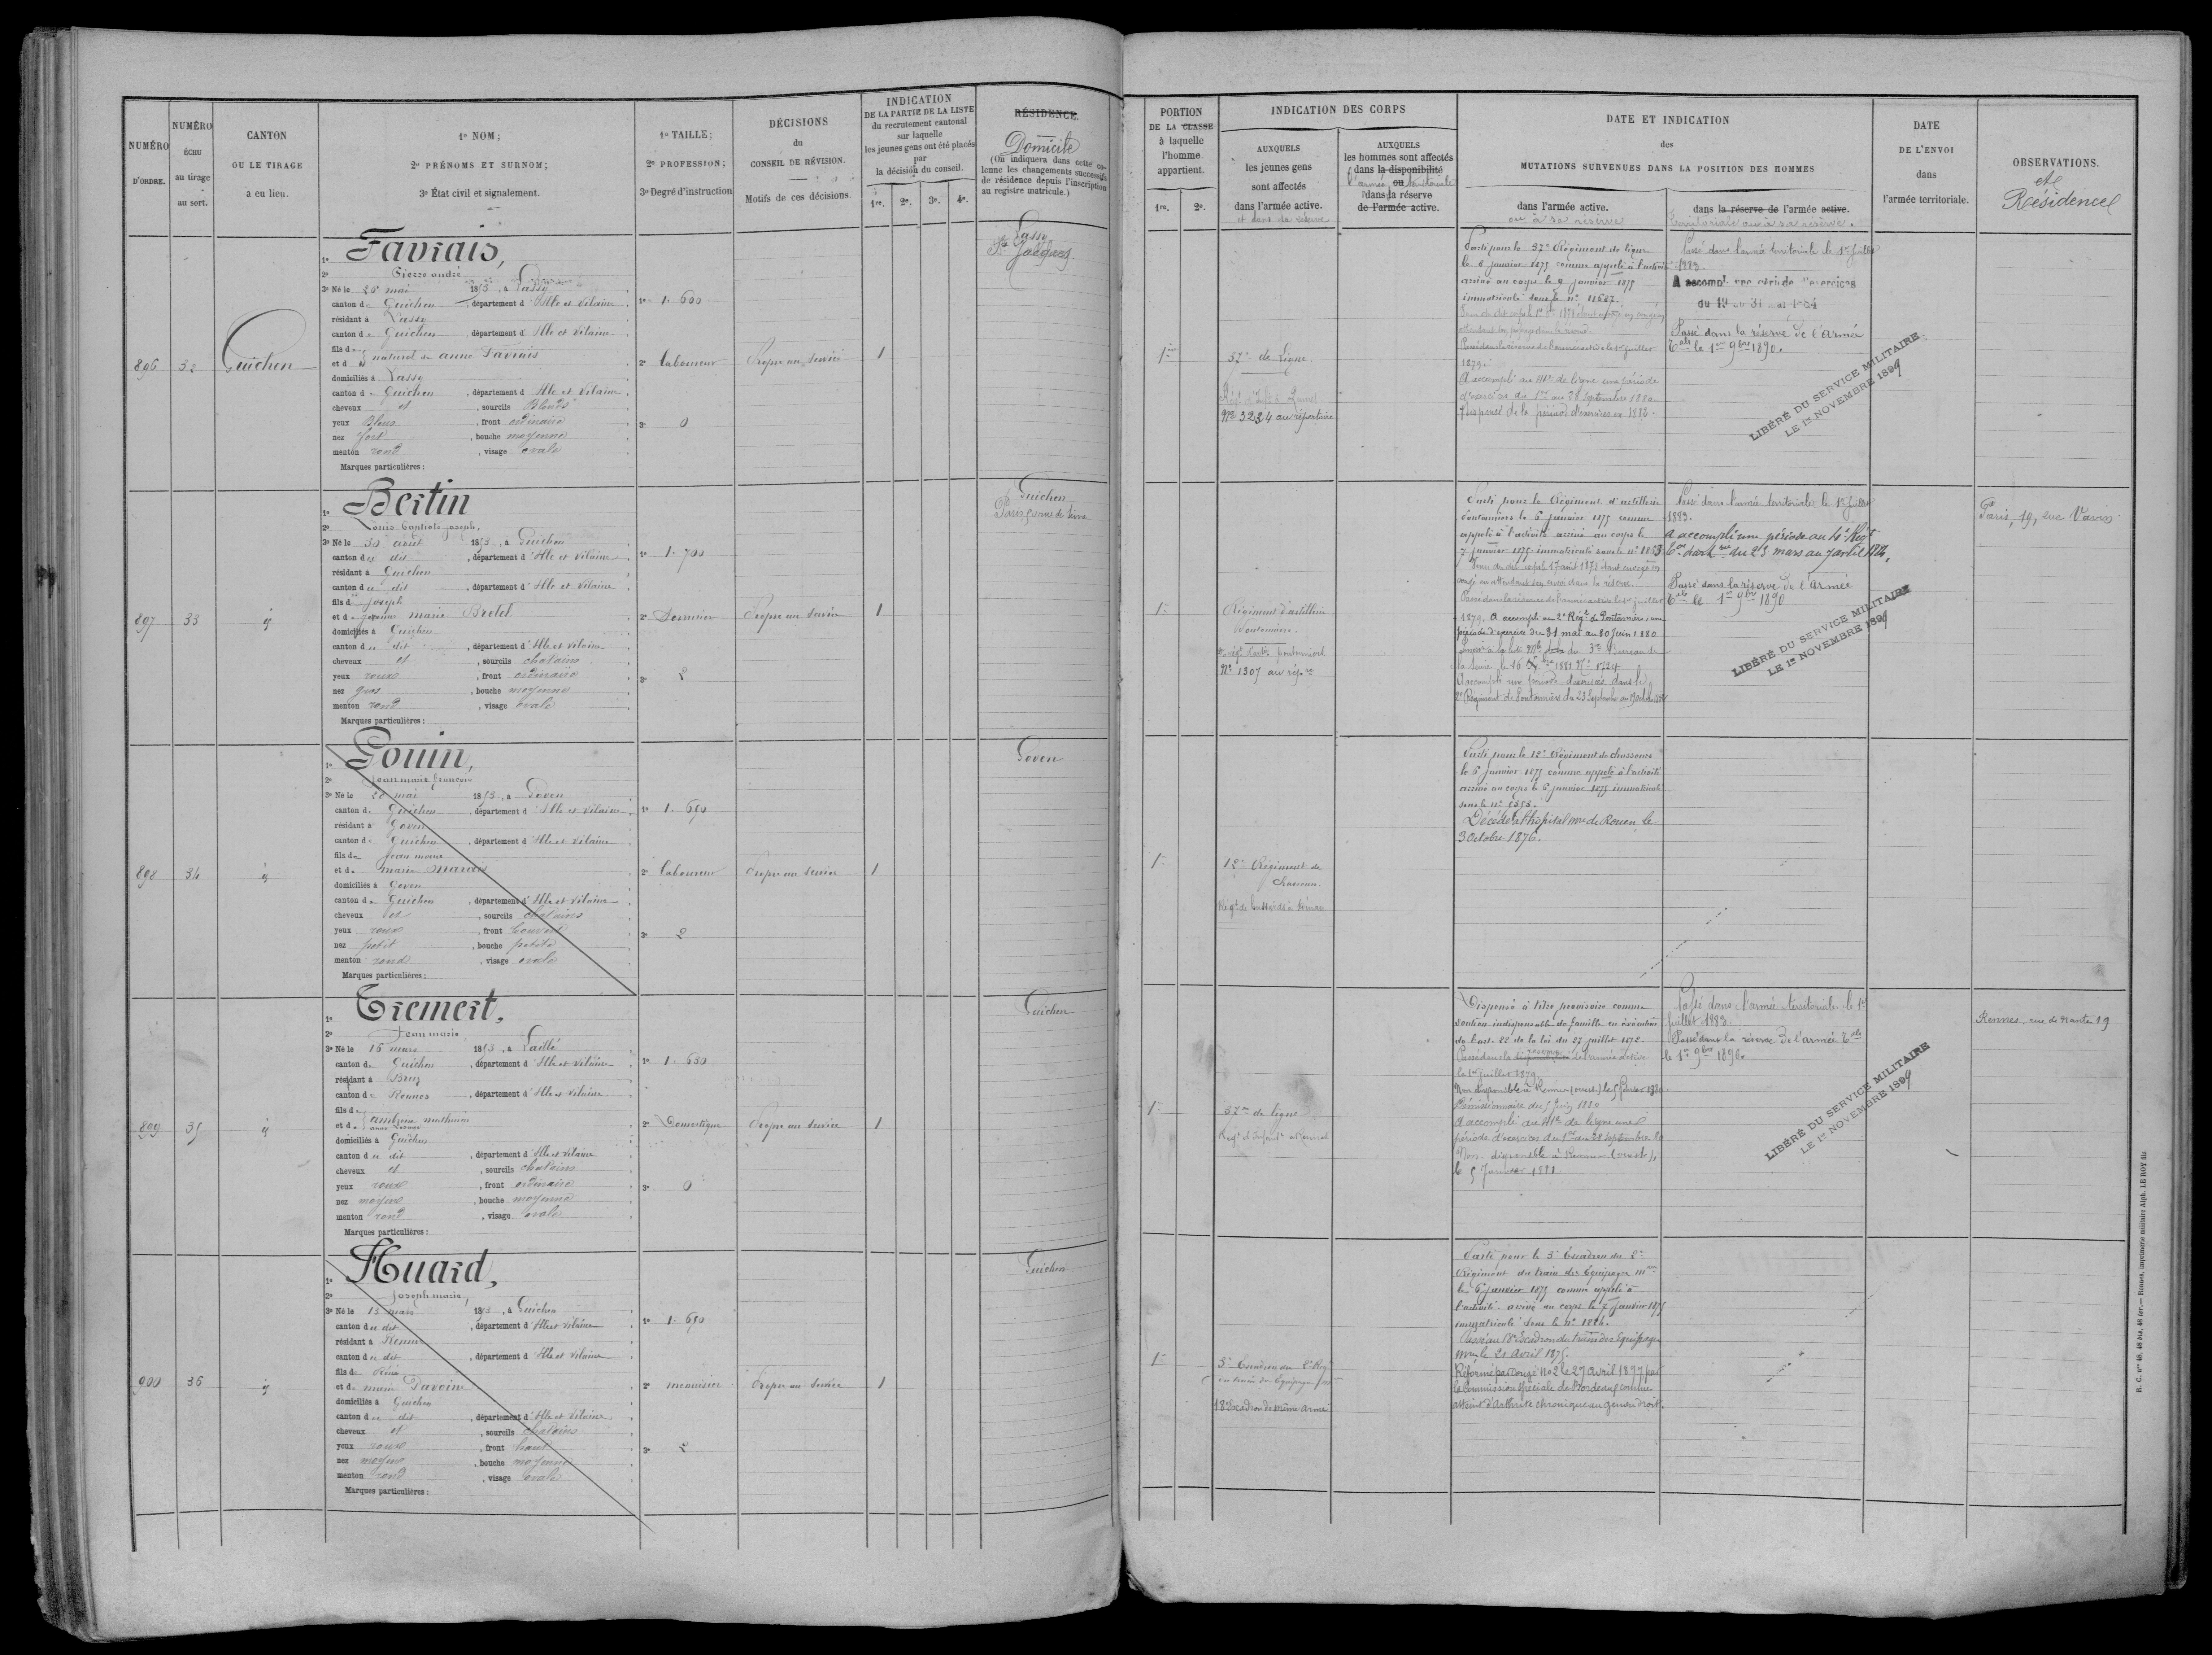 NUMÉRO
D'ORDRE.
NUMÉRO
ÉCHU
au tirage
au sort.
CANTON
OU LE TIRAGE
a eu lieu.
1º NOM;
2º PRÉNOMS ET SURNOM;
3º État civil et signalement.
1º TAILLE;
2º PROFESSION;
3º Degré d'instruction
DÉCISIONS
du
CONSEIL DE RÉVISION.
Motifs de ces décisions.
INDICATION
DE LA PARTIE DE LA LISTE
du recrutement cantonal
sur laquelle
les jeunes gens ont été placés
par
la décision du conseil.
1re. 2e. 3e. 4e.
RÉSIDENCE.
Domicile
(On indiquera dans cette co-
lonne les changements successifs
de résidence depuis l'inscription
au registre matricule.)
PORTION
DE LA CLASSE
à laquelle
l'homme
appartient.
1re. 2e.
INDICATION DES CORPS
AUXQUELS
les jeunes gens
sont affectés
dans l'armée active.
et dans la réserve
AUXQUELS
les hommes sont affectés
dans la disponibilité
ou
l'armée territoriale
dans la réserve
de l'armée active.
DATE ET INDICATION
des
MUTATIONS SURVENUES DANS LA POSITION DES HOMMES
dans l'armée active.
ou à sa réserve
dans la réserve de l'armée active.
territoriale ou à sa réserve.
DATE
DE L'ENVOI
dans
l'armée territoriale.
OBSERVATIONS.
et
Résidence
896
32
Guichen
1º Favrais,
2º Pierre andré
3º Né le 26 mai 1853, à Lassy
canton de Guichen, département d'Ille et Vilaine
résidant à Lassy
canton de Guichen, département d'Ille et Vilaine
fils de
et de naturel de anne Favrais
domiciliés à Lassy
canton de Guichen, département d'Ille et Vilaine
cheveux et, sourcils Blonds
yeux Bleus, front ordinaire
nez fort, bouche moyenne
menton rond, visage ovale
Marques particulières:
1º 1. 600
2º Laboureur
3º 0
Propre au service
1
Lassy
St Jacques
1re
37e de Ligne.
Nº 3224 au répertoire
Parti pour le 37e Régiment de ligne
le 6 janvier 1875 comme appelé à l'activité
arrivé au corps le 9 janvier 1875
immatriculé sous le nº 11687.
Passé dans la réserve de l'armée active le 1er juillet
1879.
A accompli au 41e de ligne une période
d'exercices du 1er au 28 septembre 1880.
Dispensé de la période d'exercices en 1882.
Passé dans l'armée territoriale le 1er juillet
1883.
A accompl. une période d'exercices
du 19 au 31 mai 1884
Passé dans la réserve de l'armée
Tale le 1er 9bre 1890.
LIBÉRÉ DU SERVICE MILITAIRE
LE 1er NOVEMBRE 1899
897
33
id
1º Bertin
2º Louis Baptiste joseph,
3º Né le 30 août 1853, à Guichen
canton du dit, département d'Ille et Vilaine
résidant à Guichen
canton du dit, département d'Ille et Vilaine
fils de joseph
et de marie Bretel
domiciliés à Guichen
canton du dit, département d'Ille et Vilaine
cheveux et, sourcils chatains
yeux roux, front ordinaire
nez gros, bouche moyenne
menton rond, visage ovale
Marques particulières:
1º 1. 700
2º
3º 2
Propre au service
1
Guichen
Paris
1re
Régiment d'artillerie
Pontonniers.
Nº 1307 au rép.re
Parti pour le Régiment d'artillerie
Pontonniers le 6 janvier 1875 comme
appelé à l'activité arrivé au corps le
7 janvier 1875 immatriculé sous le nº
congé en attendant son envoi dans la réserve.
Passé dans la réserve de l'armée active le 1er juillet
1879. A accompli au 2e Régt de Pontonniers une
période d'exercice du 31 mai au 30 juin 1880
du 3e Bureau de
la Seine le 16 1881 Nº 1724
A accompli une période d'exercices dans le
2e Régiment de Pontonniers du 23 Septembre au
Passé dans l'armée territoriale le 1er juillet
1883.
A accompli une période au 4e Régt
Tal d'artie du 23 mars au 7 avril
Passé dans la réserve de l'Armée
Tale le 1er 9bre 1890
LIBÉRÉ DU SERVICE MILITAIRE
LE 1er NOVEMBRE 1899
Paris, 19, rue Vavin
898
34
id
1º Gouin,
2º Jean marie françois
3º Né le 20 mai 1853, à Goven
canton de Guichen, département d'Ille et Vilaine
résidant à Goven
canton de Guichen, département d'Ille et Vilaine
fils de Jean marie
et de marie Marcois
domiciliés à Goven
canton de Guichen, département d'Ille et Vilaine
cheveux et, sourcils chatains
yeux roux, front couvert
nez petit, bouche petite
menton rond, visage ovale
Marques particulières:
1º 1. 650
2º Laboureur
3º 2
Propre au service
1
Goven
1re
12e Régiment de
chasseurs.
Parti pour le 12e Régiment de chasseurs
le 6 janvier 1875 comme appelé à l'activité
arrivé au corps le janvier 1875 immatriculé
sous le nº
Décédé à l'hôpital mre de Rouen le
3 Octobre 1876.
899
35
id
1º Tremert,
2º Jean marie
3º Né le 16 mars 1853, à Laillé
canton de Guichen, département d'Ille et Vilaine
résidant à Bruz
canton de Rennes, département d'Ille et Vilaine
fils de
et de
domiciliés à Guichen
canton du dit, département d'Ille et Vilaine
cheveux et, sourcils chatains
yeux roux, front ordinaire
nez moyen, bouche moyenne
menton rond, visage ovale
Marques particulières:
1º 1. 630
2º Domestique
3º 0
Propre au service
1
Guichen
1re
37e de ligne
Dispensé à titre provisoire comme
soutien indispensable de famille en exécution
de l'art. 22 de la loi du 27 juillet 1872.
Passé dans la réserve de l'armée active
le 1er juillet 1879.
Non disponible à Rennes (ouest) le 5 janvier 1880.
A accompli au 41e de ligne une
période d'exercices du 1er au 28 septembre 80
Non disponible à Rennes
le 5 Janvier 1881.
Passé dans l'armée territoriale le 1er
Juillet 1883.
Passé dans la réserve de l'armée Tale
le 1er 9bre 1890.
LIBÉRÉ DU SERVICE MILITAIRE
LE 1er NOVEMBRE 1899
Rennes, rue de Nantes 19
900
36
id
1º Huard,
2º Joseph marie,
3º Né le 13 mars 1853, à Guichen
canton du dit, département d'Ille et Vilaine
résidant à Rennes
canton du dit, département d'Ille et Vilaine
fils de Réné
et de marie Davoine
domiciliés à Guichen
canton du dit, département d'Ille et Vilaine
cheveux et, sourcils chatains
yeux roux, front haut
nez moyen, bouche moyenne
menton rond, visage ovale
Marques particulières:
1º 1. 650
2º menuisier
3º 2
Propre au service
1
Guichen
1re
3e Escadron du 2e Régt
du train des Equipages
18e Escadron de même arme
Parti pour le 3e Escadron du 2e
Régiment du train des Equipages mres
le 6 janvier 1875 comme appelé à
l'activité. arrivé au corps le 7 janvier 1875
immatriculé sous le nº
Passé au 18e Escadron du train des Equipages
mres le 21 Avril 1875.
Réformé par congé Nº 2 le 27 avril 1877 par
la Commission spéciale de Bordeaux comme
atteint d'Arthrite chronique au genou droit.
R. C. nos 46, 48 bis, 48 ter.— Rennes, imprimerie militaire Alph. LE ROY fils